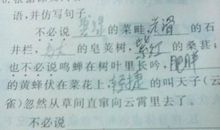 语,并仿写句子。
不必说碧绿的菜畦,光滑的石
井栏,高大的皂荚树,紫红的桑葚;
也不必说鸣蝉在树叶里长吟,肥胖
的黄蜂伏在菜花上,轻捷的叫天子(云
雀)忽然从草间直窜向云霄里去了。
不必说